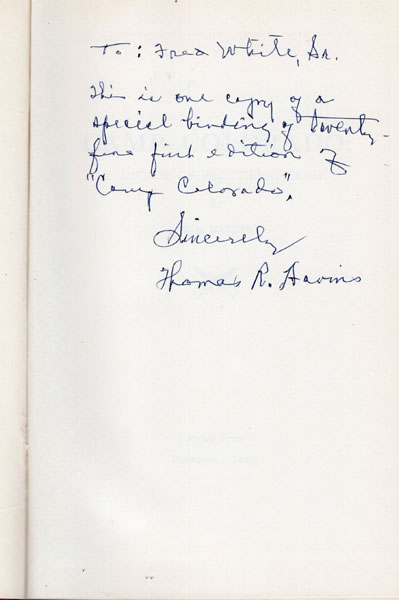 To: Fred White, Sr.
This is one copy of a
special binding of twenty-
five first edition of
"Camp Colorado".
Sincerely
Thomas R. Havins